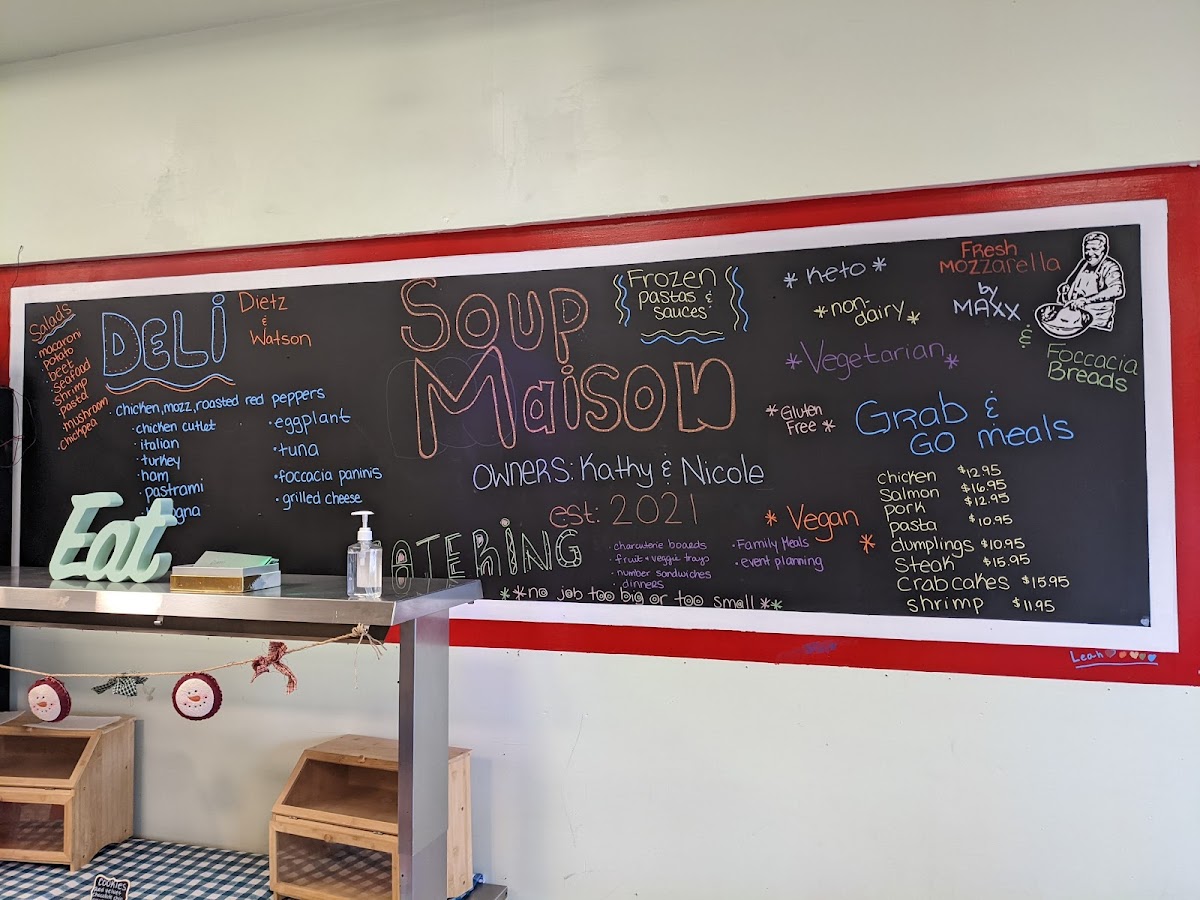 Salads
· macaroni
· potato
· beet
· seafood
· shrimp
· pasta
· mushroom
· chickpea
DELi
Dietz
&
Watson
· chicken, mozz, roasted red peppers
· chicken cutlet
· italian
· turkey
· ham
· pastrami
· eggplant
· tuna
· foccacia paninis
· grilled cheese
SOUP
MaiSON
OWNERS: Kathy & Nicole
est: 2021
Frozen
pastas &
sauces
* keto *
*non-
dairy*
*Vegetarian*
* Gluten
Free *
* Vegan
*
FRESH
MOZZarella
by
MAXX
&
FOCCACIA
Breads
GRab &
GO meals
chicken $12.95
Salmon $16.95
pork $12.95
pasta $10.95
dumplings $10.95
Steak $15.95
Crabcakes $15.95
shrimp $11.95
ATERiNG
· charcuterie boards
· fruit & veggie trays
· number sandwiches
· dinners
· Family Meals
· event planning
**no job too big or too small**
Leah
Eat
COOKIES